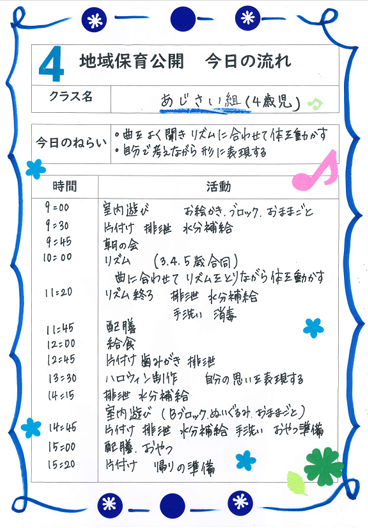 4 地域保育公開 今日の流れ
クラス名 あじさい組(4歳児)
今日のねらい
・曲をよく聞きリズムに合わせて体を動かす
・自分で考えながら形に表現する
時間 活動
9:00 室内遊び お絵かき、ブロック、おままごと
9:30 片付け 排泄 水分補給
9:45 朝の会
10:00 リズム (3.4.5歳合同)
曲に合わせてリズムをとりながら体を動かす
11:20 リズム終了 排泄 水分補給
手洗い 消毒
11:45 配膳
12:00 給食
12:45 片付け 歯みがき 排泄
13:30 ハロウィン制作 自分の思いを表現する
14:15 排泄 水分補給
室内遊び (Bブロック、ぬいぐるみ、おままごと)
14:45 片付け 排泄 水分補給 手洗い おやつ準備
15:00 配膳、おやつ
15:20 片付け 帰りの準備